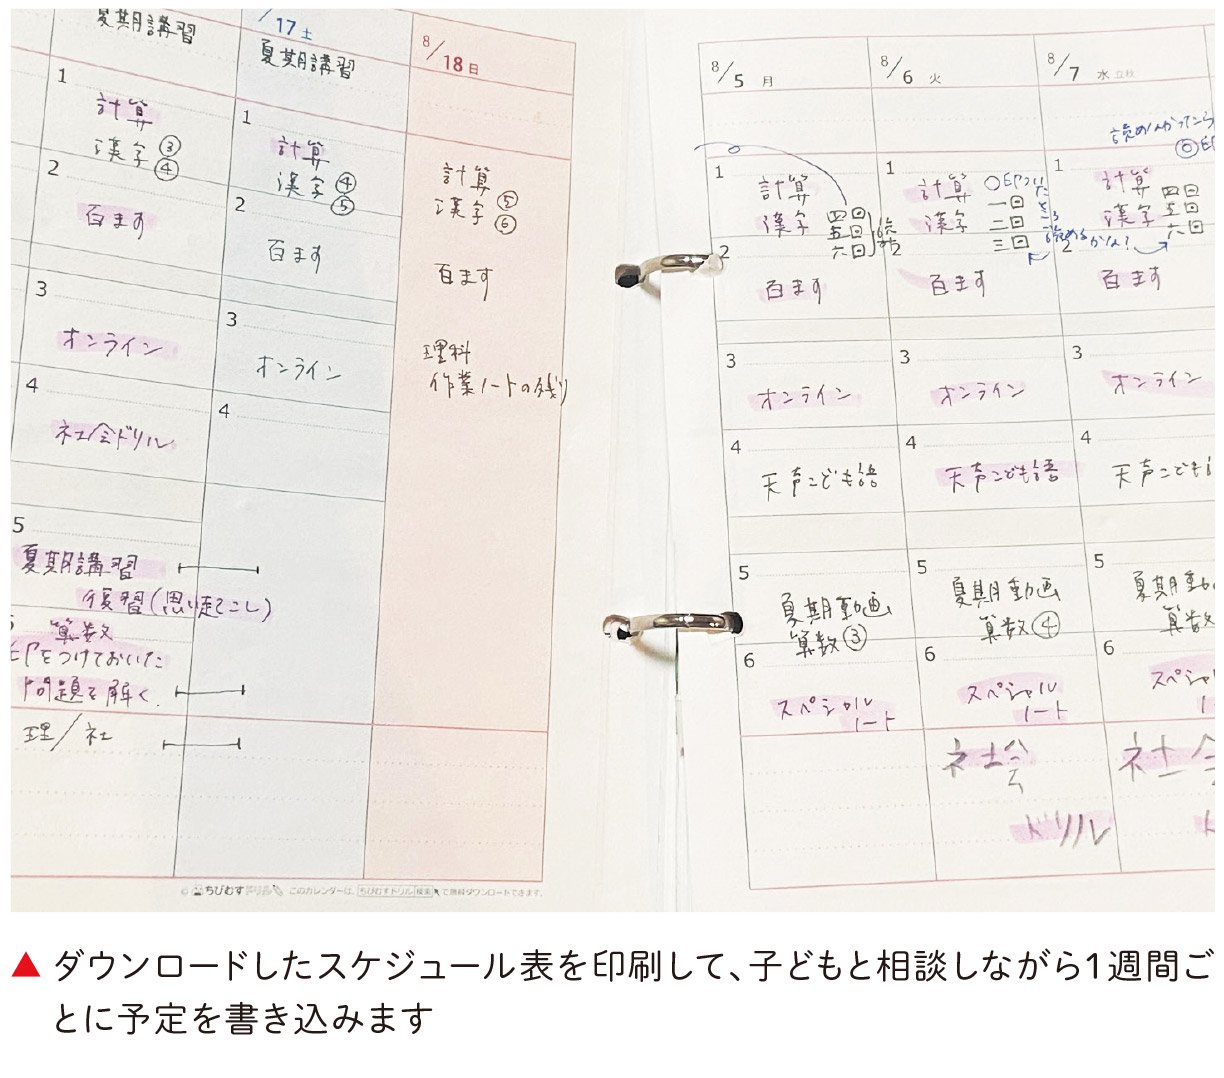 夏期講習
1
計算
漢字 ③
④
2
百ます
3
オンライン
4
社会ドリル
5
夏期講習
復習(思い起こし)
算数
印をつけておいた
問題を解く.
理/社
/17 土
夏期講習
1
計算
漢字 ④
⑤
2
百ます
3
オンライン
4
8/18 日
計算
漢字 ⑤
⑥
百ます
理科
作業ノートの残り
© ちびむすドリル このカレンダーは、ちびむすドリル 検索 で無料ダウンロードできます。
8/5 月
1
計算
漢字 四回
五回
六回
2
百ます
3
オンライン
4
天声こども語
5
夏期動画
算数③
6
スペシャル
ノート
8/6 火
1
計算 ○印ついた
漢字 一回 ところ
二回
三回 読めるかな?
2
百ます
3
オンライン
4
天声こども語
5
夏期動画
算数④
6
スペシャル
ノート
社会
ドリル
8/7 水 立秋
読めんかったら
◎印
1
計算 四回
漢字 五回
六回
2
百ます
3
オンライン
4
天声こども
5
夏期動
算数
6
スペシ
社会
ド
▲ ダウンロードしたスケジュール表を印刷して、子どもと相談しながら1週間ご
とに予定を書き込みます